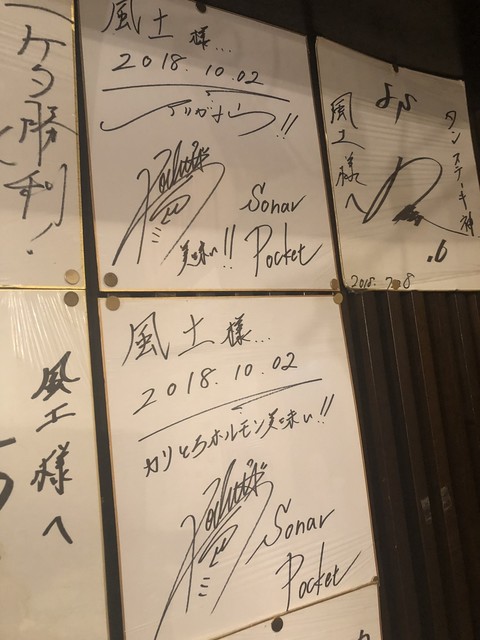 ケタ勝利!
風土様...
2018.10.02
アリガとう!!
美味い!!
Sonar
Pocket
風土様へ
タンステーキ神
.6
2018. 7. 8
風土様へ
風土様...
2018.10.02
カリとろホルモン美味い!!
Sonar
Pocket